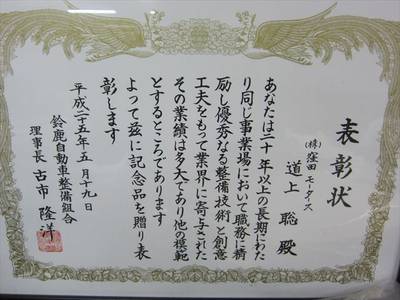 表彰状
(株)窪田モータース
道上 聡 殿
あなたは二十年以上の長期にわた
り同じ事業場において職務に精
励し優秀なる整備技術と創意
工夫をもって業界に寄与された
その業績は多大であり他の模範
とするところであります
よって茲に記念品を贈り表
彰します
平成二十五年五月十九日
鈴鹿自動車整備組合
理事長 古市 隆洋